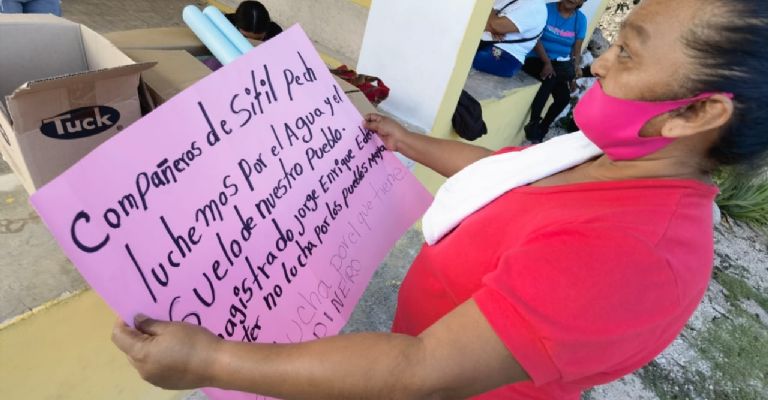 Tuck
Compañeros de Sitil Pech
luchemos Por el Agua y el
Suelo de nuestro Pueblo.
magistrado Jorge Enrique Eden
no lucha por los pueblos maya
lucha por el que tiene
DINERO